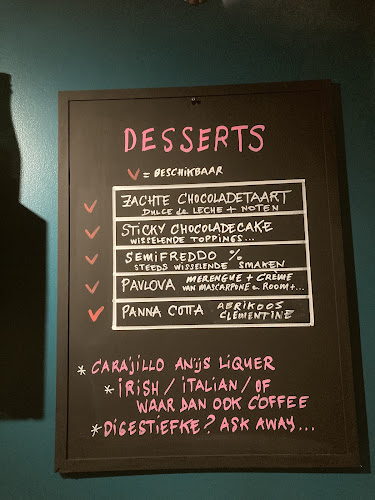 DESSERTS
V = BESCHIKBAAR
ZACHTE CHOCOLADETAART
DULCE de LECHE + NOTEN
STICKY CHOCOLADECAKE
WISSELENDE TOPPINGS...
SEMIFREDDO %
STEEDS WISSELENDE SMAKEN
PAVLOVA MERENGUE + CRÈME
VAN MASCARPONE & ROOM +...
PANNA COTTA ABRIKOOS
CLEMENTINE
* CARAJILLO ANIJS LIQUER
* IRISH / ITALIAN / OF
WAAR DAN OOK COFFEE
* DIGESTIEFKE? ASK AWAY...